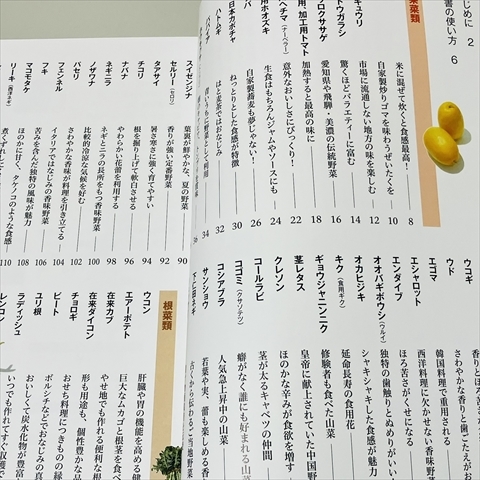 じめに 2
書の使い方 6
果菜類
キュウリ
米に混ぜて炊くと食感最高! 8
自家製炒りゴマを味わうぜいたくを 10
市場に流通しない地方の味を楽しむ 12
トウガラシ 驚くほどバラエティーに富む 14
ロクササゲ 愛知県や飛騨・美濃の伝統野菜 16
用、加工用トマト 加熱すると最高の味に 18
ヘチマ（ナーベラー） 意外なおいしさにびっくり! 22
用ホオズキ 生食はもちろんジャムやソースにも 24
自家製蕎麦も夢じゃない! 26
日本カボチャ ねっとりとした食感が特徴 30
ハトムギ はと麦茶ではおなじみ 32
パパイア 青いうちに野菜として利用 34
ウコギ 香りとほろ苦さ
ウド さわやかな香りと歯ごたえが
エゴマ 韓国料理で重用される
エシャロット 西洋料理に欠かせない香味野菜
エンダイブ ほろ苦さがくせになる
オオバギボウシ（ウルイ） 独特の歯触りとぬめりがいい
オカヒジキ シャキシャキした食感が魅力
キク（食用ギク） 延命長寿の食用花
ギョウジャニンニク 修験者も食べた山菜
茎レタス 皇帝に献上されていた中国野
クレソン ほのかな辛みが食欲を増す
コールラビ 茎が太るキャベツの仲間
コゴミ（クサソテツ） 癖がなく誰にも好まれる山菜
コシアブラ 人気急上昇中の山菜
サンショウ 若葉や実、蕾も楽しめる香
下仁田ネギ 古くから伝わるご当地野菜
スイゼンジナ 葉裏が鮮やかな、夏の野菜 90
セルリー（セロリ） 香りが強い定番野菜 92
タアサイ 暑さ寒さに強く育てやすい 94
チコリ 根を掘り上げて軟白させる 96
ナバナ やわらかい花蕾を利用する 98
ネギニラ ネギとニラの長所をもつ香味野菜
ノザワナ 比較的冷涼な気候を好む 100
パセリ さわやかな香味が料理を引き立てる 102
フェンネル イタリアではおなじみの香味野菜 104
フキ 苦みを含んだ独特の風味が魅力 106
マコモタケ ほのかに甘く、タケノコのような食感 108
リーキ（西洋ネギ） 煮くずれしにく 110
根菜類
ウコン 肝臓や胃の機能を高める健
エアーポテト 巨大なムカゴと根茎を食べ
在来カブ やせ地でも作れる便利な根
在来ダイコン 形も用途も、個性豊かな品
チョロギ おせち料理につきものの縁
ビート ボルシチなどでおなじみの真
ユリ根 おいしくて炭水化物が豊富
ラディッシュ いつでも作れてすぐ収穫で
レンコン